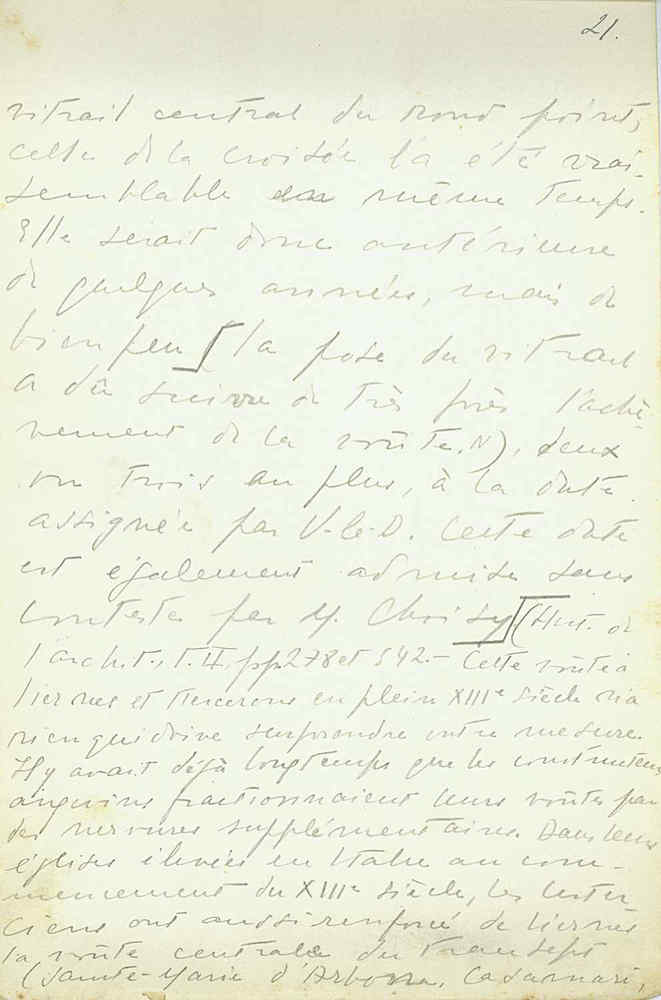 21.
vitrail central du rond point,
celle de la croisée l'a été vrai-
semblable en même temps.
Elle serait donc antérieure
de quelques années, mais de
bien peu [(la pose du vitrail
a dû suivre de très près l'achè-
vement de la voûte. N), deux
ou trois au plus, à la date
assignée par V-le-D. Cette date
est également admise sans
conteste par M. Choisy] (Hist. de
l'archit., t. II, pp. 278 et 542. - Cette voûte à
liernes et tiercerons en plein XIIIe siècle n'a
rien qui doive surprendre outre mesure.
Il y avait déjà longtemps que les constructeurs
angevins fractionnaient leurs voûtes par
des nervures supplémentaires. Dans leurs
églises élevées en Italie au com-
mencement du XIIIe siècle, les Cister
ciens ont aussi renforcé de liernes
la voûte centrale du transept
(Sainte-Marie d'Arbona, Casamari,